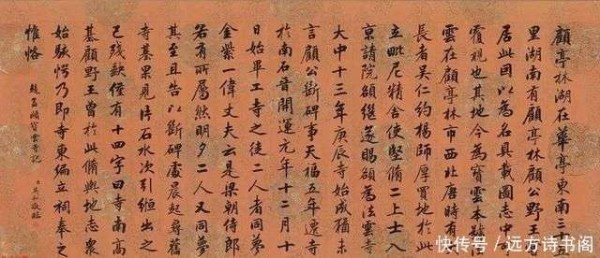 顧亭林湖在華亭東南三十五
里湖南有顧亭林顧公野王
居此因以為名具載圖志中
視也其地今為寶雲本號法
雲在顧亭林市西北唐時有
長者吳仁約楊師厚買地於此
立毗尼精舍使堅脩二上士入
京請院額繼遂賜額為法雲寺
大中十三年庚辰寺始成猶未
言顧公斷碑事天福五年遷寺
於南石晉開運元年十二月十
日始畢工寺之徒二人者同夢
金紫一偉丈夫云是梁朝侍郎
若有所屬然明夕二人又同夢
其至且告以斷碑處晨起尋舊
寺基果見片石水次引縆出之
已殘缺僅有十四字曰寺南高
基顧野王曾於此脩輿地志眾
始駭愕乃即寺東偏立祠奉之
惟恪
趙孟頫寶雲寺記
快传号／远方诗书阁